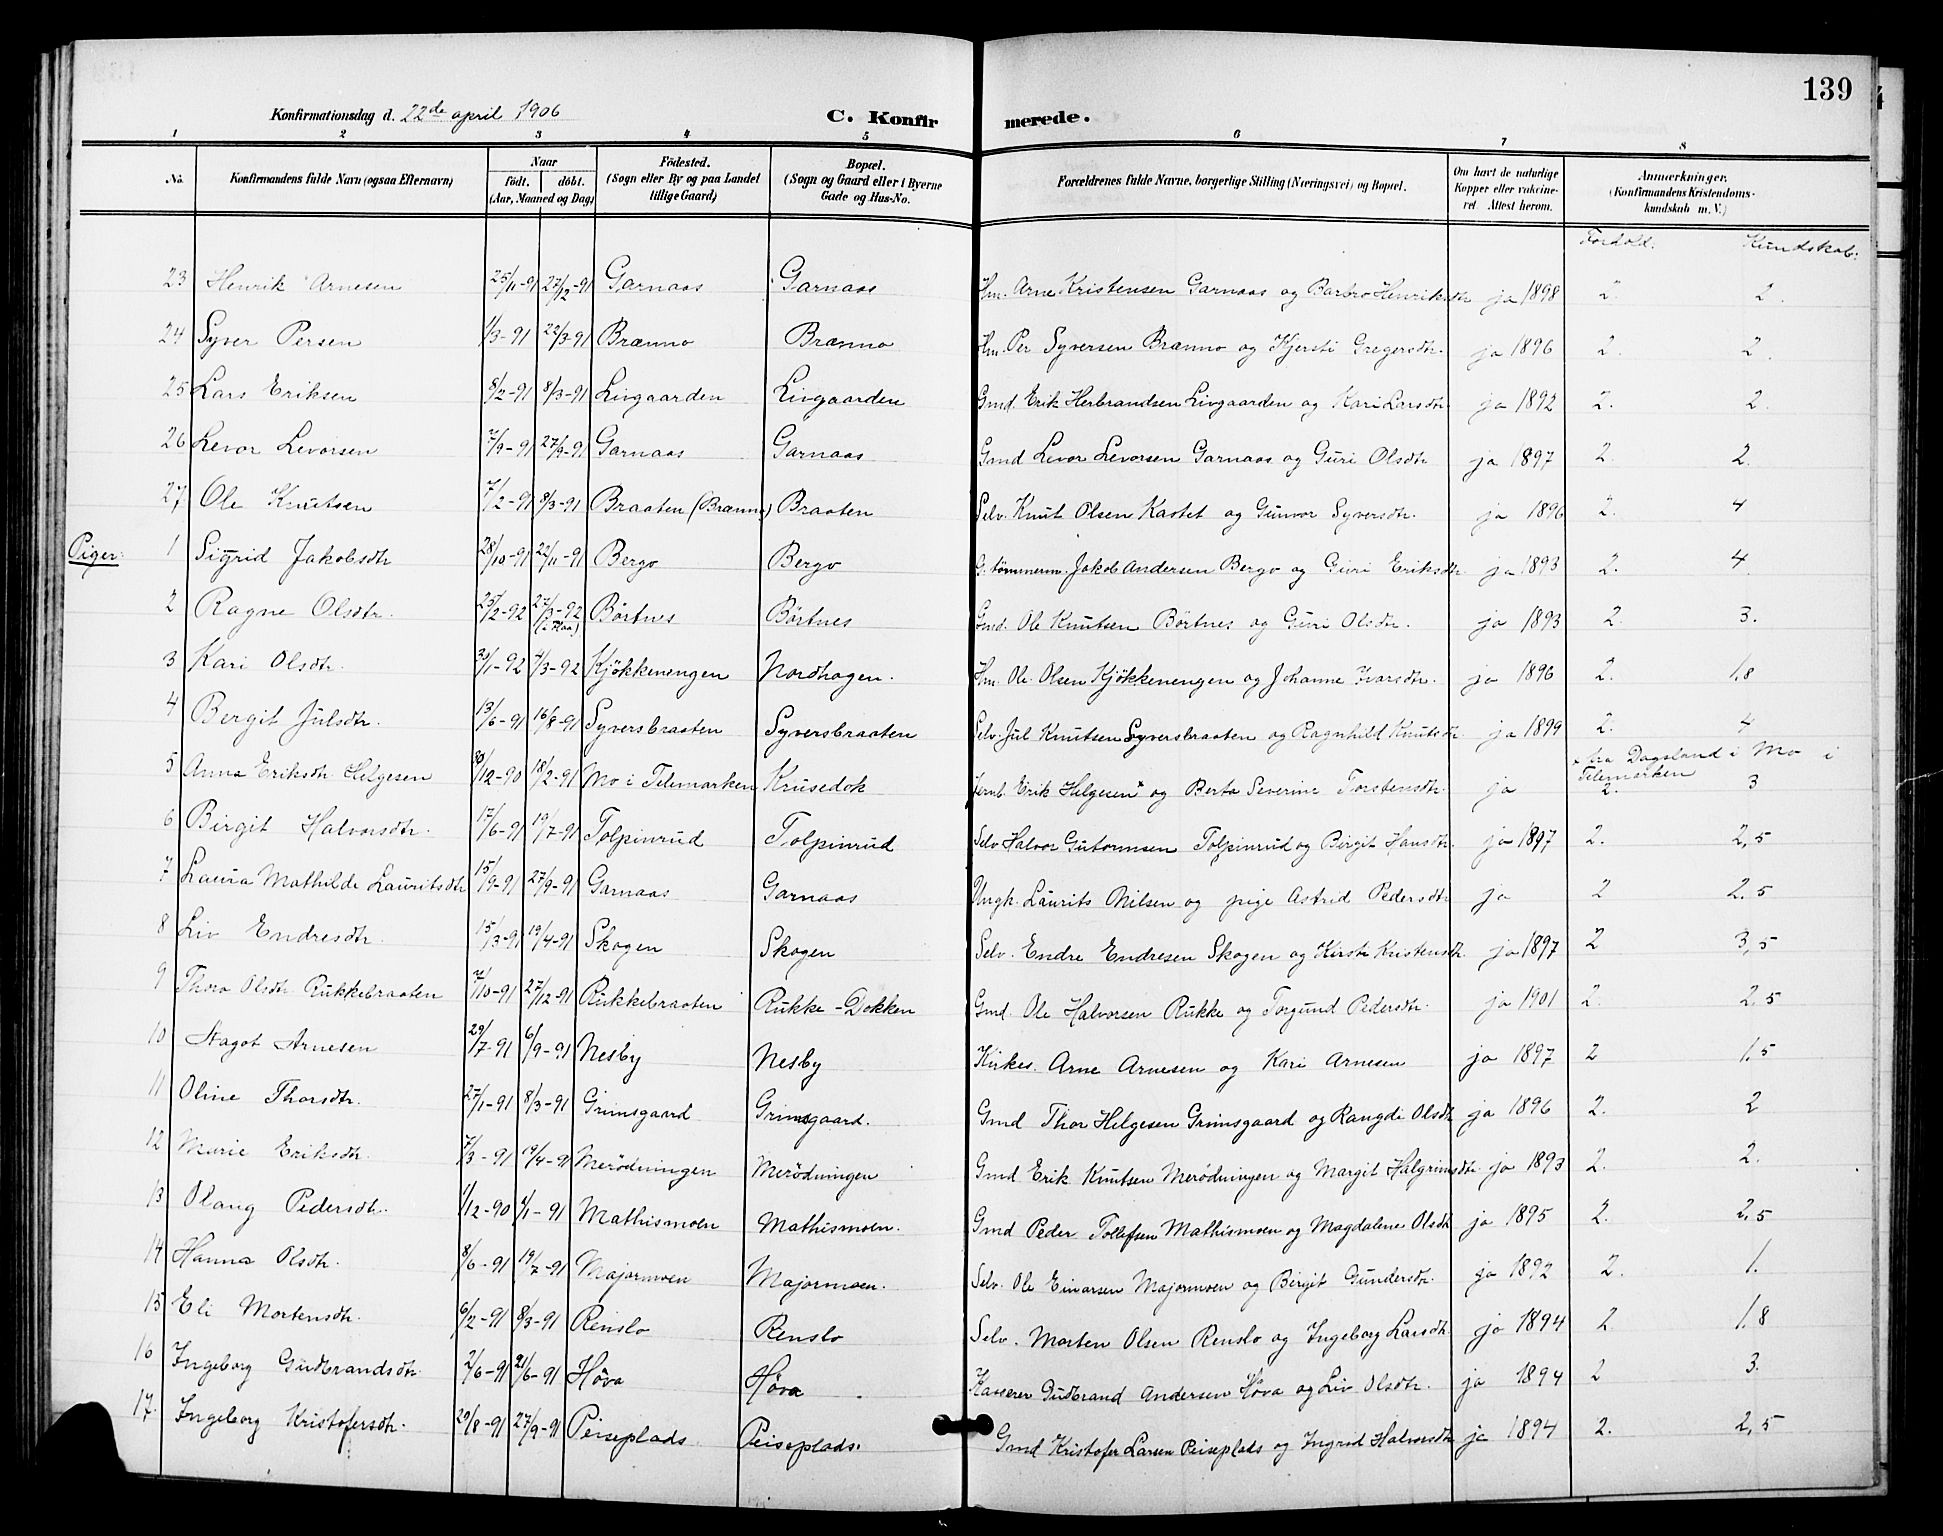 139
Konfirmationsdag d. 22de april 1906 C. Konfirmerede.
1 2 3 4 5 6 7 8
No. Konfirmandens fulde Navn (ogsaa Efternavn) Naar født. døbt. (Aar, Maaned og Dag) Fødested. (Sogn eller By og paa Landet tillige Gaard) Bopæl. (Sogn og Gaard eller i Byerne Gade og Hus-No. Forældrenes fulde Navne, borgerlige Stilling (Næringsvei) og Bopæl. Om havt de naturlige Kopper eller vakcineret. Attest herom. Anmærkninger. (Konfirmandens Kristendomskundskab m. V.)
Forhold. Kundskab:
23 Henrik Arnesen 25/11-91 27/12-91 Garnaas Garnaas Hm. Arne Kristensen Garnaas og Barbro Henriksdtr ja 1898 2. 2.
24 Syver Persen 1/3-91 22/3-91 Brænno Brænno Hm. Per Syversen Brænno og Kjersti Gregersdtr. ja 1896 2. 2.
25 Lars Eriksen 8/2-91 8/3-91 Livgaarden Livgaarden Gmd. Erik Herbrandsen Livgaarden og Kari Larsdtr. ja 1892 2. 2.
26 Levor Levorsen 7/9-91 27/9-91 Garnaas Garnaas Gmd Levor Levorsen Garnaas og Guri Olsdtr ja 1897 2. 2.
27. Ole Knutsen 7/2-91 8/3-91 Braaten (Brænno) Braaten Selv. Knut Olsen Kastet og Gunvor Syversdtr. ja 1896 2. 4
Piger: 1 Sigrid Jakobsdtr 28/10-91 22/11-91 Bergo Bergo G. tømmerm. Jakob Andersen Bergo og Guri Eriksdtr ja 1893 2. 4
2 Ragne Olsdtr. 25/2-92 27/3-92 (i Flaa) Børtnes Børtnes Gmd. Ole Knutsen Børtnes og Guri Olsdtr. ja 1893 2. 3.
3 Kari Olsdtr. 30/1-92 4/3-92 Kjøkkenengen Nordhagen. Hm. Ole Olsen Kjøkkenengen og Johanne Ivarsdtr. ja 1896 2. 1,8
4 Bergit Julsdtr. 13/6-91 16/8-91 Syversbraaten Syversbraaten Selv. Jul Knutsen Syversbraaten og Ragnhild Knutsdtr ja 1899 2. 4
x fra Dagsland i Mo i Telemarken
5 Anna Eriksdtr Helgesen 30/12-90 18/2-91 Mo i Telemarken Krusedok Jernb. Erik Helgesen x og Berta Severine Torstensdtr. ja 2. 3
6 Birgit Halvorsdtr. 17/6-91 19/7-91 Tolpinrud Tolpinrud Selv Halvor Gutormsen Tolpinrud og Birgit Hansdtr. ja 1897 2. 2,5
7 Laura Mathilde Lauritsdtr 15/9-91 27/9-91 Garnaas Garnaas Ungk. Laurits Nilsen og pige Astrid Pedersdtr ja 2 2.5
8 Liv Endresdtr. 15/3-91 19/4-91 Skogen Skogen Selv. Endre Endresen Skogen og Kirsti Kristensdtr. ja 1897 2 3,5
9 Thora Olsdtr Rukkebraaten 7/10-91 27/12-91 Rukkebraaten Rukke-Dokken Gmd. Ole Halvorsen Rukke og Torgund Pedersdtr. ja 1901 2. 2,5
10 Dagot Arnesen 29/7-91 6/9-91 Nesby Nesby Kirkes. Arne Arnesen og Kari Arnesen ja 1897 2 1.5
11 Oline Thorsdtr. 27/1-91 8/3-91 Grimsgaard Grimsgaard. Gmd Thor Helgesen Grimsgaard og Rangdi Olsdtr ja 1896 2. 2
12 Marie Eriksdtr. 7/3-91 19/4-91 Merødningen Merødningen Gmd. Erik Knutsen Merødningen og Margit Halgrimsdtr ja 1893 2. 2.
13 Olaug Pedersdtr. 1/12-90 1/1-91 Mathismoen Mathismoen. Gmd Peder Tollefsen Mathismoen og Magdalene Olsdtr ja 1895 2. 2,5
14 Hanna Olsdtr. 8/6-91 19/7-91 Majormoen Majormoen. Selv. Ole Einarsen Majormoen og Birgit Gundersdtr. ja 1892 2. 1.
15 Eli Mortensdtr. 6/2-91 8/3-91 Renslo Renslo Selv. Morten Olsen Renslo og Ingeborg Larsdtr. ja 1894 2. 1.8
16 Ingeborg Gudbrandsdtr. 2/6-91 21/6-91 Høva Høva Kasserer Gudbrand Andersen Høva og Liv Olsdtr. ja 1894 2 3.
17. Ingeborg Kristofersdtr. 29/8-91 27/9-91 Peiseplads Peiseplads. Gmd Kristofer Larsen Peiseplads og Ingrid Halvorsdtr ja 1894 2. 2,5